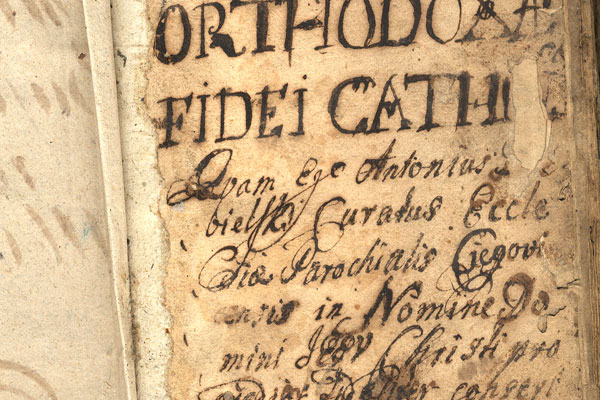 ORTHODOXA
FIDEI CATH
Quam Ego Antonius
bielski Curatus Eccle
siæ Parochialis Ciegovi
ensis in Nomine Do
mini Jesu Christi pro
fideliter conscri